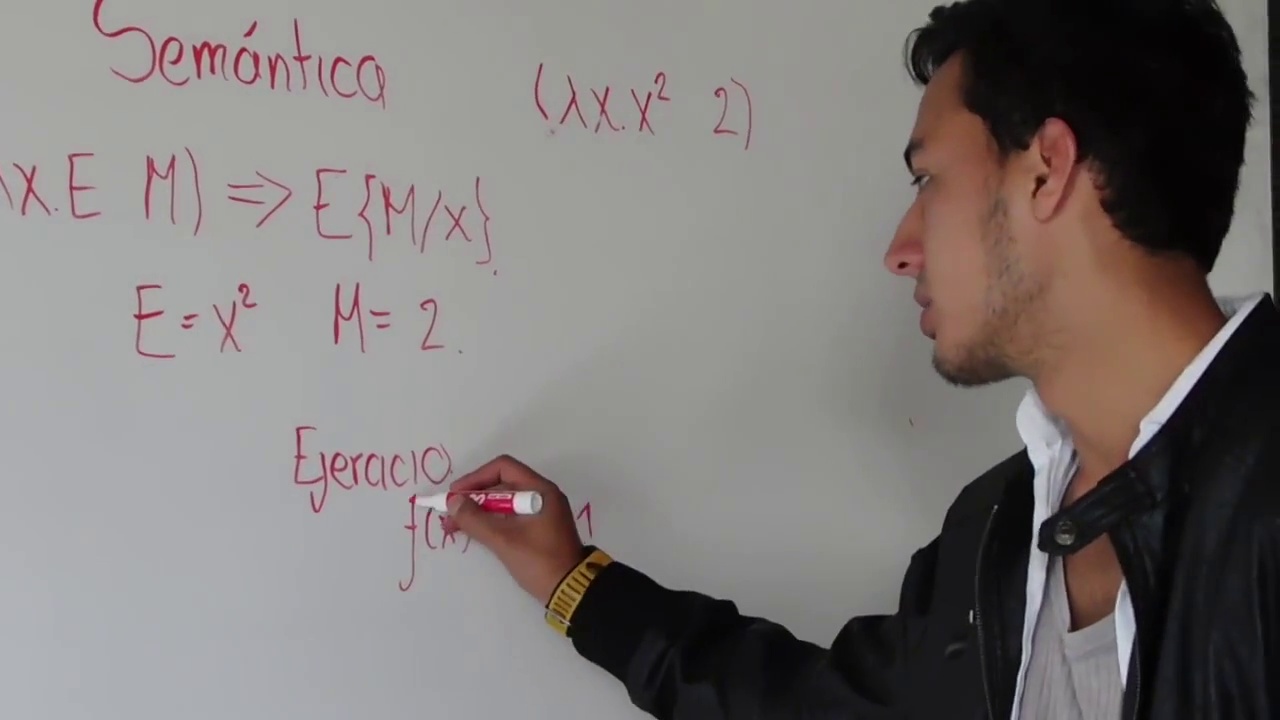 Semántica
(λx.x² 2)
λx.E M) => E{M/x}.
E=x² M= 2.
Ejercicio
f(x) 1